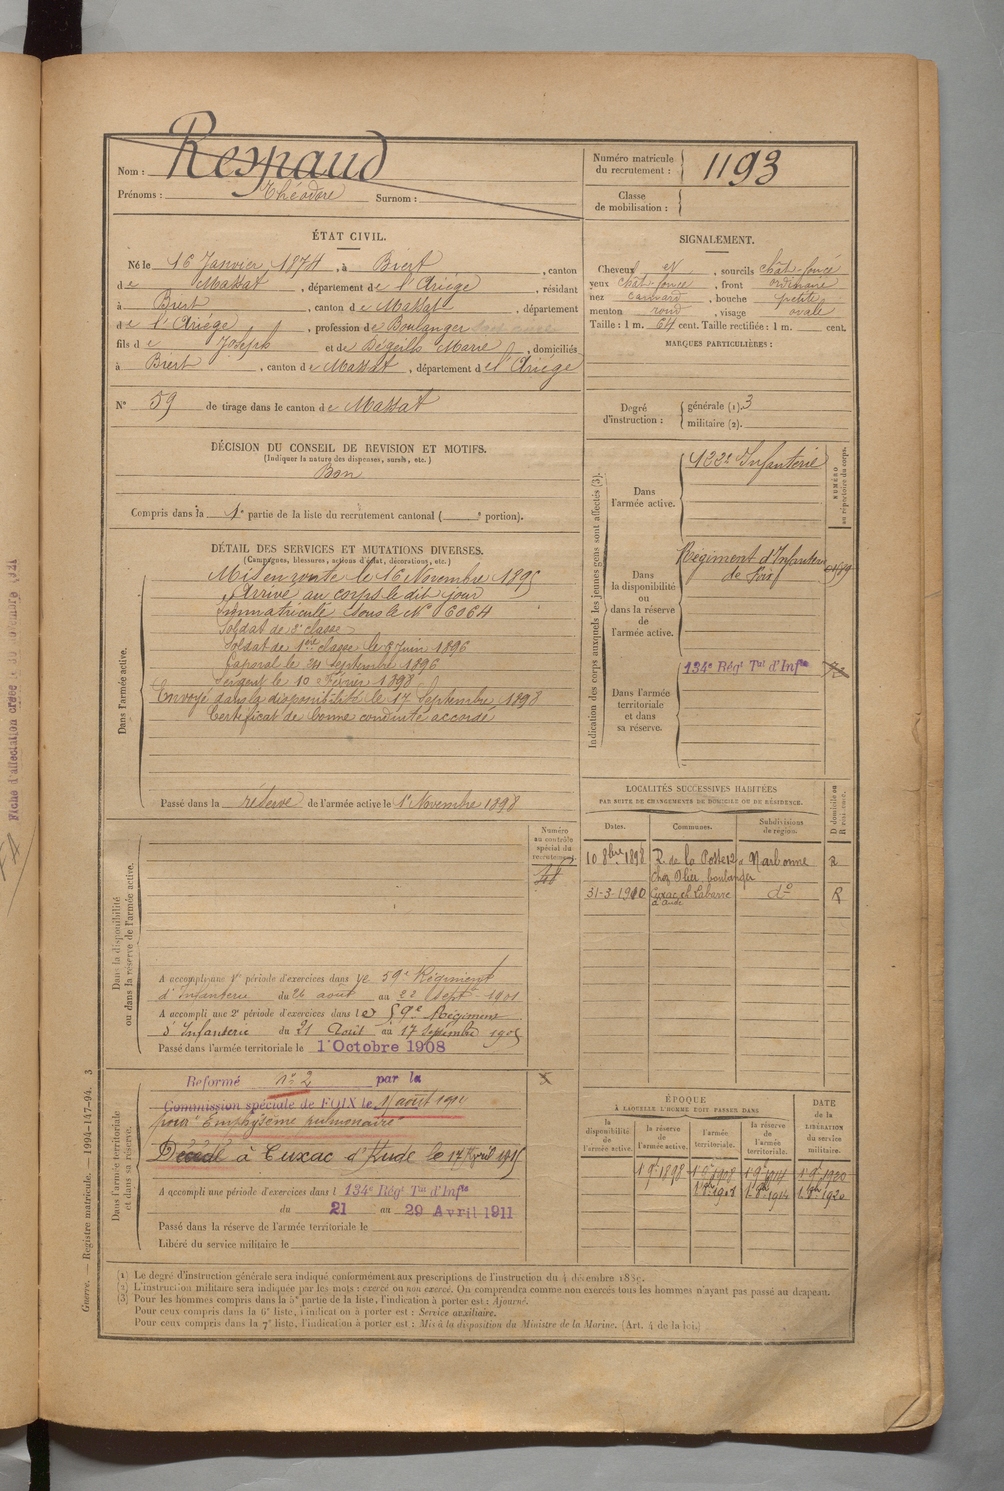 Nom : Respaud
Prénoms : Théodore Surnom :
Numéro matricule du recrutement : 1193
Classe de mobilisation :
ÉTAT CIVIL.
Né le 16 Janvier 1874, à Biert, canton
de Massat, département de l'Ariège, résidant
à Biert, canton de Massat, département
de l'Ariège, profession de Boulanger
fils de Joseph et de Dégeilh Marie, domiciliés
à Biert, canton de Massat, département de l'Ariège
N° 59 de tirage dans le canton de Massat
DÉCISION DU CONSEIL DE REVISION ET MOTIFS.
(Indiquer la nature des dispenses, sursis, etc.)
Bon
Compris dans la 1e partie de la liste du recrutement cantonal ( e portion).
DÉTAIL DES SERVICES ET MUTATIONS DIVERSES.
(Campagnes, blessures, actions d'éclat, décorations, etc.)
Dans l'armée active.
Mis en route le 16 Novembre 1895
Arrivé au corps le dit jour
Immatriculé sous le N° 6064
Soldat de 2e classe
Soldat de 1ère classe le 8 Juin 1896
Caporal le 24 septembre 1896
Sergent le 10 Février 1898
Envoyé dans la disponibilité le 17 Septembre 1898
Certificat de bonne conduite accordé
Passé dans la réserve de l'armée active le 1er Novembre 1898
Numéro au contrôle spécial du recrutement
Dans la disponibilité ou dans la réserve de l'armée active.
A accompli une 1re période d'exercices dans le 59e Régiment
d'Infanterie du 26 août au 22 Sept. 1901
A accompli une 2e période d'exercices dans le 59e Régiment
d'Infanterie du 21 Août au 17 Septembre 1905
Passé dans l'armée territoriale le 1er Octobre 1908
Dans l'armée territoriale et dans sa réserve.
Réformé n° 2 par la
Commission spéciale de FOIX le août 191
pour Emphysème pulmonaire
Décédé à Cuxac d'Aude le 17 Avril 1915
A accompli une période d'exercices dans l 134e Régt Tal d'Infie
du 21 au 29 Avril 1911
Passé dans la réserve de l'armée territoriale le
Libéré du service militaire le
SIGNALEMENT.
Cheveux et, sourcils chât-foncé
yeux chât-foncé, front ordinaire
nez, bouche petite
menton rond, visage ovale
Taille : 1 m. 64 cent. Taille rectifiée : 1 m. cent.
MARQUES PARTICULIÈRES :
Degré d'instruction : générale (1). 3
militaire (2).
Indication des corps auxquels les jeunes gens sont affectés (3).
NUMÉRO au répertoire du corps.
Dans l'armée active.
122e Infanterie
Dans la disponibilité ou dans la réserve de l'armée active.
Régiment d'Infanterie
de Foix
Dans l'armée territoriale et dans sa réserve.
134e Régt Tal d'Infie
LOCALITÉS SUCCESSIVES HABITÉES
PAR SUITE DE CHANGEMENTS DE DOMICILE OU DE RÉSIDENCE.
Dates. Communes. Subdivisions de région. D domicile ou R résidence.
10 8bre 1898 R. de la Poste 12 Narbonne R
chez Olier, boulanger
31-3-1910 Cuxac et Cabarre d° R
d'Aude
ÉPOQUE
À LAQUELLE L'HOMME DOIT PASSER DANS
DATE de la LIBÉRATION du service militaire.
la disponibilité de l'armée active. la réserve de l'armée active. l'armée territoriale. la réserve de l'armée territoriale.
(1) Le degré d'instruction générale sera indiqué conformément aux prescriptions de l'instruction du 4 décembre 1889.
(2) L'instruction militaire sera indiquée par les mots : exercé ou non exercé. On comprendra comme non exercés tous les hommes n'ayant pas passé au drapeau.
(3) Pour les hommes compris dans la 5e partie de la liste, l'indication à porter est : Ajourné.
Pour ceux compris dans la 6e liste, l'indication à porter est : Service auxiliaire.
Pour ceux compris dans la 7e liste, l'indication à porter est : Mis à la disposition du Ministre de la Marine. (Art. 4 de la loi.)
Guerre. — Registre matricule. — 1994-147-94. 3